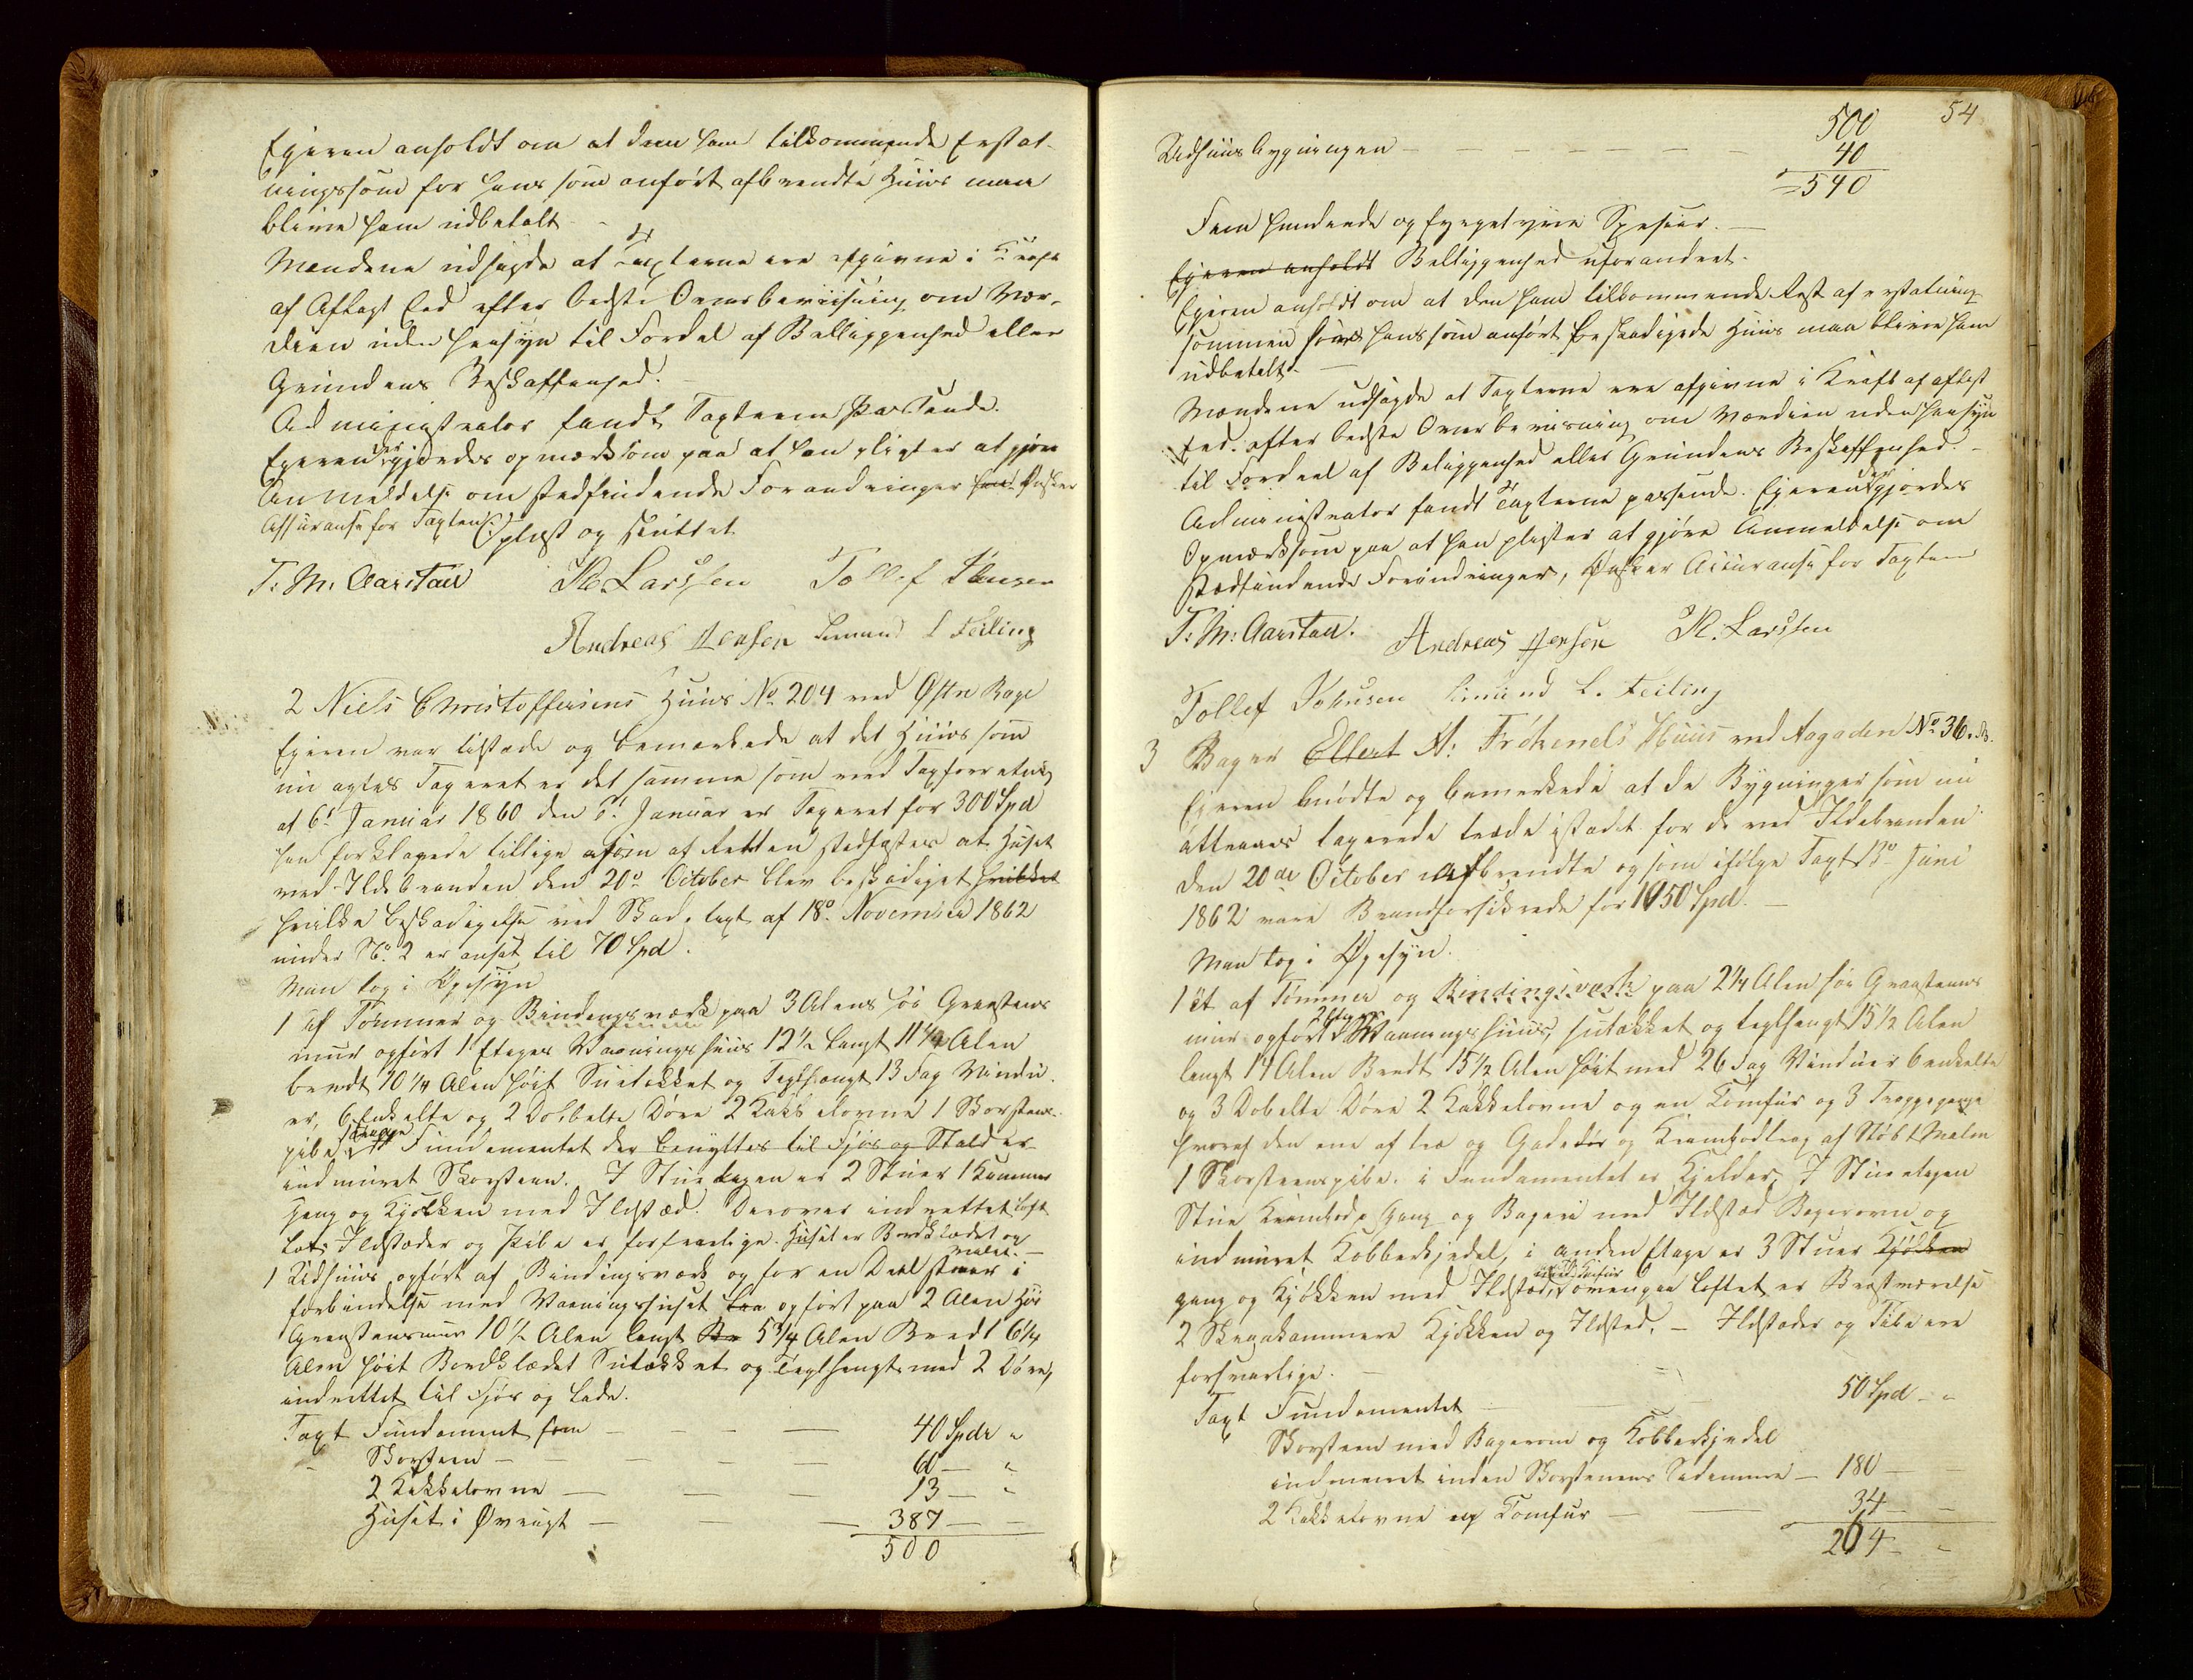 Eieren anholdt om at den ham tilkommende Erstat-
ningssom for hans som anført afbrendte Huus maa
blive ham udbetalt
Mændene udsagde at Taxterne ere afgivne i Kraft
af Aflagt Eed efter bedste Overbeviisning om Vær-
dien uden Hensyn til Fordel af Beliggenhed eller
Grundens Beskaffenhed.
Administrator fandt Taxterne passende.
Eieren gjordes opmærksom paa at han pligter at gjøre
Anmeldelse om stedfindende Forandringer Ønsker
Assuranse for Taxten oplæst og sluttet
T. M. Aarstad R. Larssen Tollef Johnsen
Andreas Jensen Simund L Feiling
2 Niels Christoffersens Huus No 204 ved Østre Bage
Eieren var tilstæde og bemærkede at det Huus som
nu agtes Taxeret er det samme som ved Taxforretning
af 6te Januar 1860 den 6te Januar er Taxeret for 300 Spd
han forklarede tillige som af Retten stedfæstes at Huset
ved Ildebranden den 20de October blev beskadiget hvilket
hvilke beskadigelse ved Skadetaxt af 18de November 1862
under No. 2 er ansat til 70 Spd.
Man tog i Øyesyn
1 af Tømmer og Bindingsværk paa 3 Alens høi Graasteens
muur opført 1 Etages Vaaningshuus 12 1/2 langt 11 1/4 Alen
bredt 10 1/4 Alen høit Sutækket og Teglhængt 13 Fag Vindu-
er, 6 Enkelte og 2 Dobbelte Døre 2 Kakkelovne 1 Skorsteens-
pibe, 1 Trappe Fundamentet der benyttes til Fjøs og Stald er
indmuret Skorsteen. I Stueetagen er 2 Stuer 1 Kammer
Gang og Kjøkken med Ildsted. Derover indrettet Loft
Ildstæder og Pibe er forsvarlige. Huset er Bordklædet og
malet.
1 Udhuus opført af Bindingsværk og for en Deel staaer i
forbindelse med Vaaningshuset opført paa 2 Alen høi
Graasteensmuur 10 1/2 Alen langt 5 3/4 Alen Bredt 6 1/4
Alen høit Bordklædet Sutækket og Teglhængt med 2 Døre,
indrettet til Fjøs og Lade.
Taxt Fundament 40 Spdr "
Skorsteen 60 — "
2 Kakkelovne 13 — "
Huset i Øvrigt 387 —
500
54
500
Udhuusbygningen 40
540
Fem hundrede og fyrgetyve Spesier.
Eieren anholdt Beliggenhed uforandret.
Eieren anholdt om at den ham tilkommende Rest af erstatning
sommen for hans som anført beskadigede Huus maa blive ham
udbetalt.
Mændene udsagde at Taxterne ere afgivne i Kraft af aflagt
Eed efter bedste Overbevisning om Værdien uden Hensyn
til Fordeel af Beliggenhed eller Grundens Beskaffenhed.
Administrator fandt Taxterne passende. Eieren gjordes
Opmærksom paa at han pligter at gjøre Anmeldelse om
stedfindende Forandringer, Ønsker Assuranse for Taxten
T. M. Aarstad. Andreas Jensen R. Larssen
Tollef Johnsen Simund L. Feiling
3 Bager Ellert A: Frökenels Huus ved Aagaden No 36. B.
Eieren mødte og bemerkede at de Bygninger som nu
atteraaes taxerede træde istedet for de ved Ildebranden
den 20de October afbrendte og som ifølge Taxt 13de Juni
1862 vare Brandforsikrede for 1050 Spd.
Man tog i Øyesyn.
1 et af Tømmer og Bindingsværk paa 2 1/4 Alen høi Graasteens
muur opført 2 Etages Vaaningshuus, sutækket og teglhængt 15 1/2 Alen
langt 14 Alen Bredt 15 1/2 Alen høit med 26 Fag Vinduer 6 enkelte
og 3 Dobelte Døre 2 Kakkelovne og en Komfur og 3 Trappegange
hvoraf den ene af træ og Gadedør og Krambodtrap af Støbt Malm
1 Skorsteenspibe. i Fundamentet er Kjelder, I Stueetagen
Stue Krambod, Gang og Bageri med Ildsted Bagerovn og
indmuret Kobberkjedel, i anden Etage er 3 Stuer Kjøkken
gang og Kjøkken med Ildsted, ovenpaa Loftet er Bræstværelse
2 Skraakammere Kjøkken og Ildsted. — Ildstæder og Pibe ere
forsvarlige.
Taxt Fundamentet 50 Spd "
Skorsteen med Bagerovn og Kobberkjedel
indmuret inden Skorsteenens Sidemure — 180 —
2 Kakkelovne og Komfur 34 —
264 "